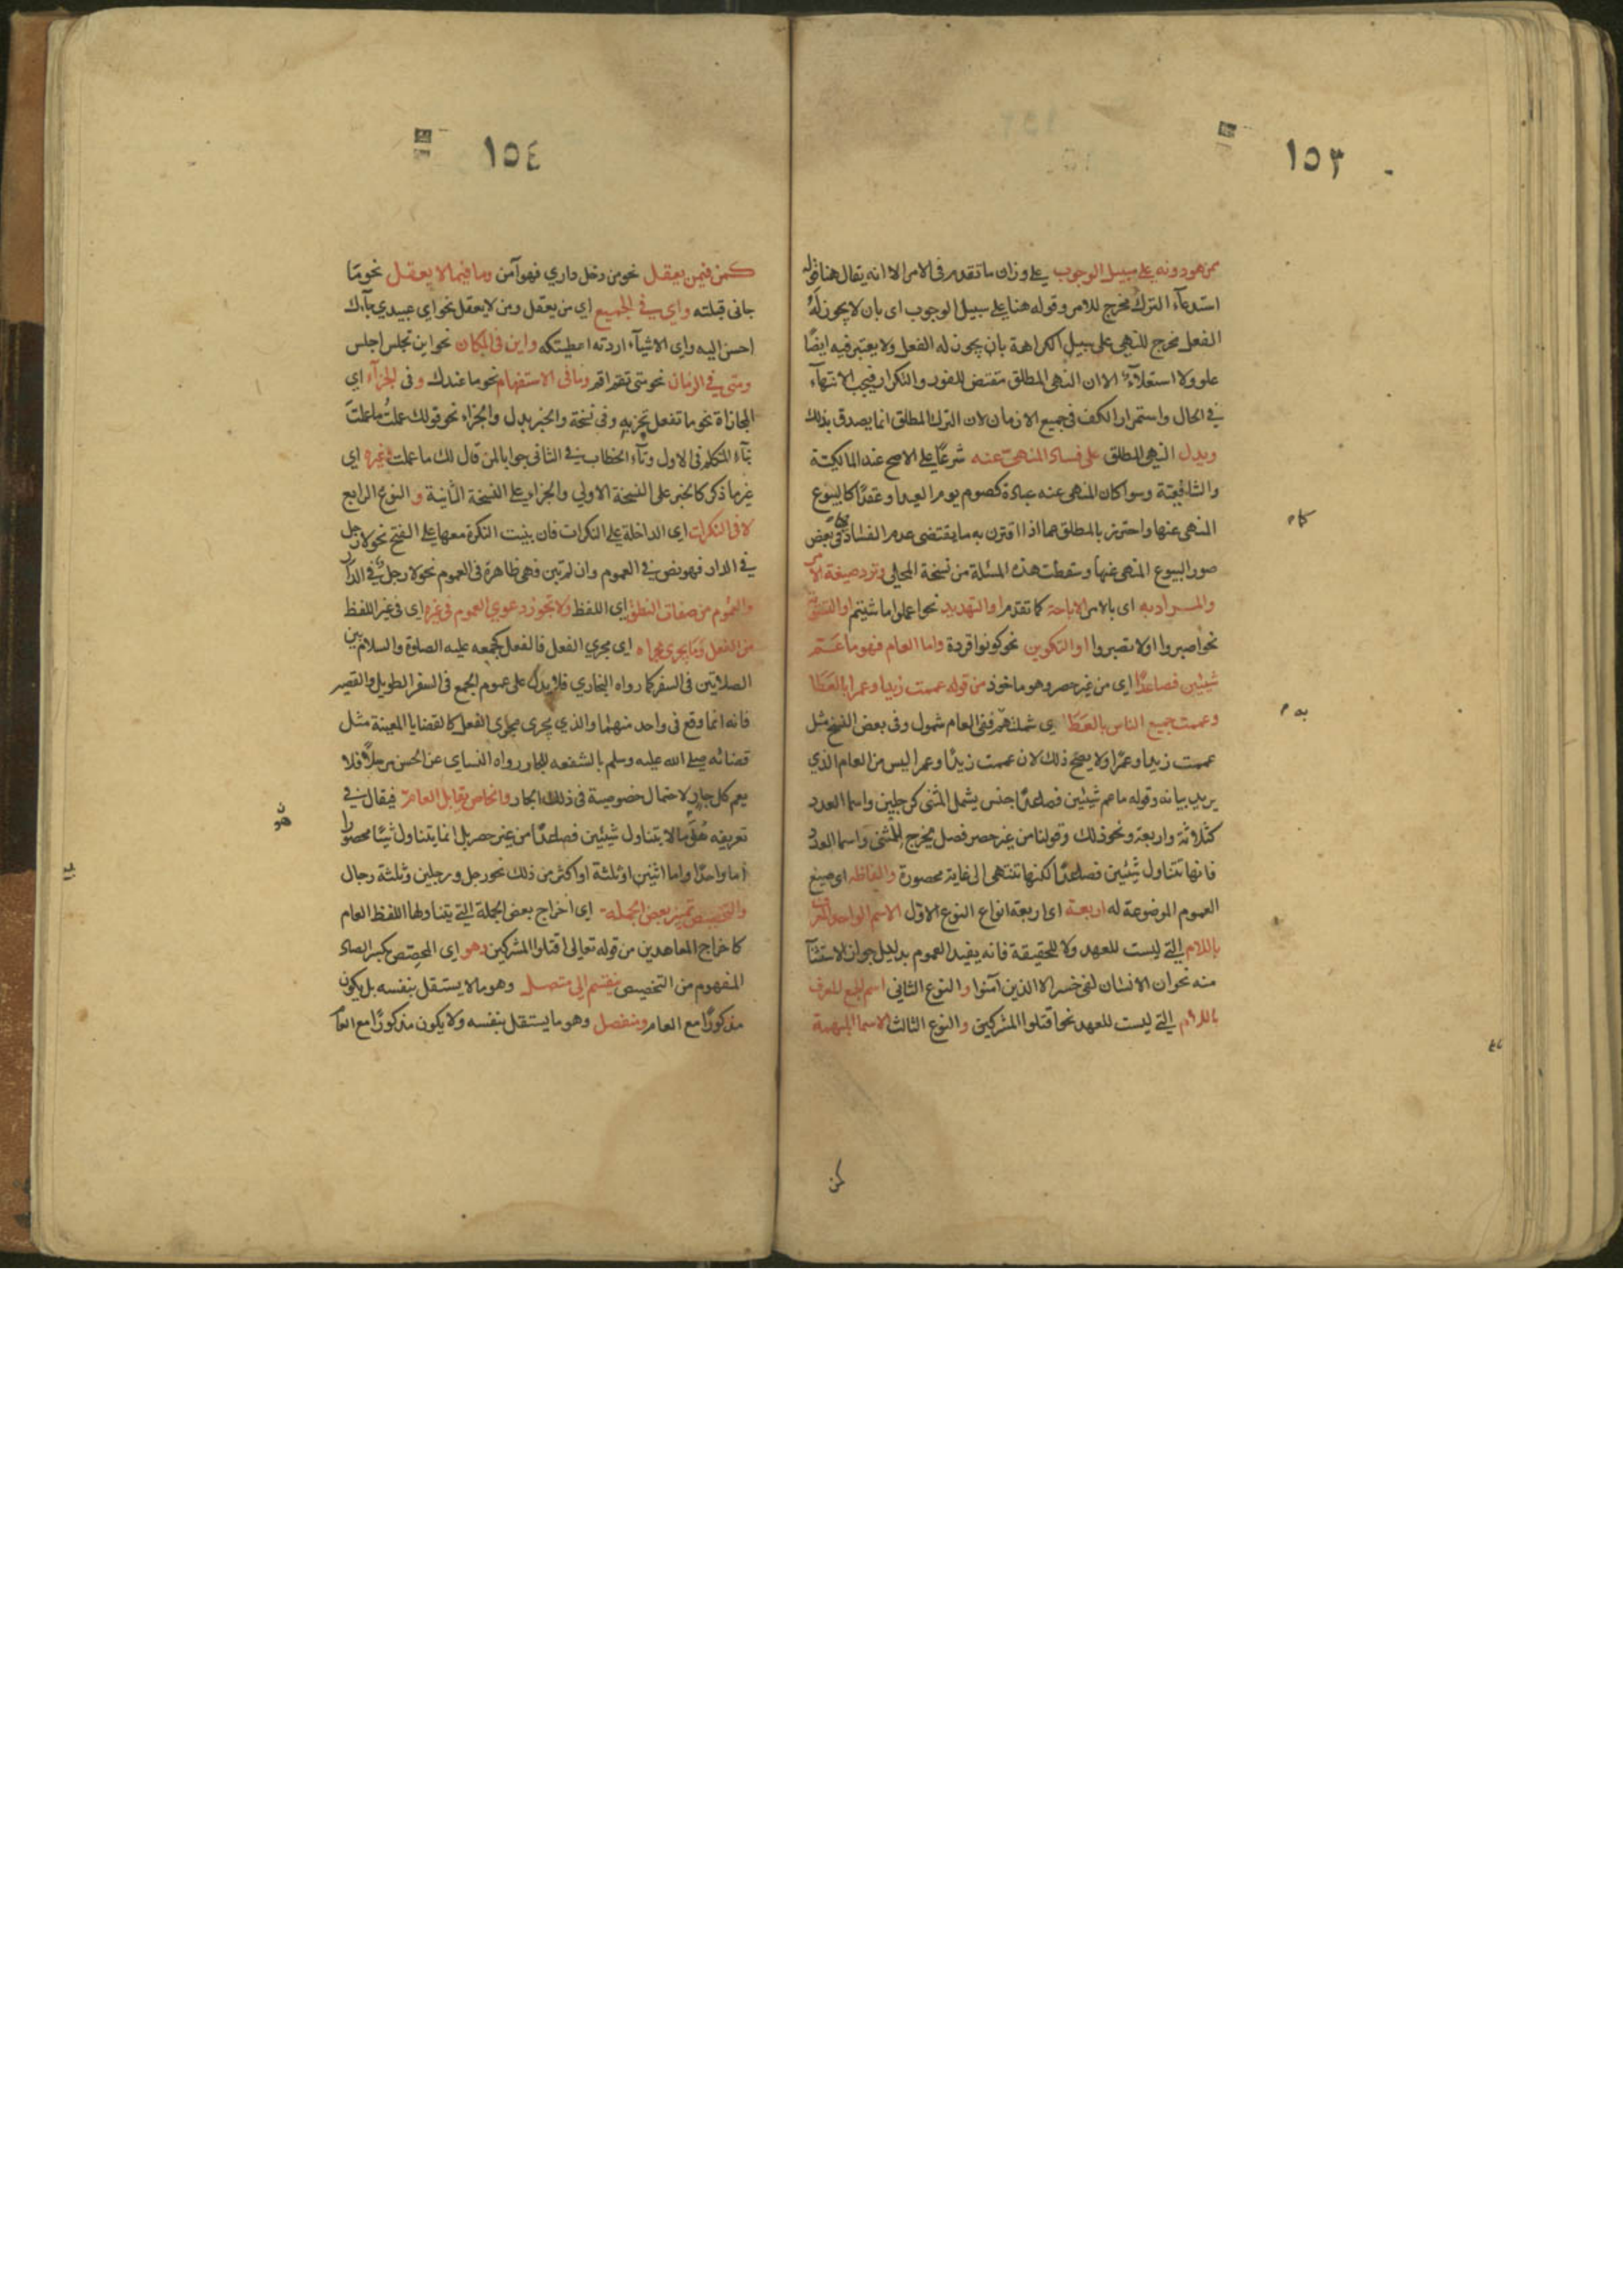 ١٥٣
ممن هو دونه على سبيل الوجوب على وزان ما تقدم في الامر الا انه يقال هنا قوله
استدعآء الترك مخرج للامر وقوله هنا على سبيل الوجوب اى بان لا يجوز له
الفعل مخرج للنهى على سبيل الكراهة بان يجوز له الفعل ولا يعتبر فيه ايضًا
علو ولا استعلآء الا ان النهى المطلق مقتض للفور والتكرار فيجب الانتهآء
في الحال واستمرار الكف في جميع الازمان لان الترك المطلق انما يصدق بذلك
ويدل النهى المطلق على فساد المنهى عنه شرعًا على الاصح عند المالكية
والشافعية وسوا كان المنهى عنه عبادة كصوم يوم العيد او عقدًا كالبيوع
المنهى عنها واحترز بالمطلق عما اذا اقترن به ما يقتضى عدم الفساد كما في بعض
صور البيوع المنهى عنها وسقطت هذه المسئلة من نسخة المحلي وترد صيغة الامر
والمراد به اى بالامر الاباحة كما تقدم او التهديد نحو اعملوا ما شيتم او التسوية
نحو اصبروا او لا تصبروا او التكوين نحو كونوا قردة واما العام فهو ما عَمّ
شيئين فصاعدًا اي من غير حصر وهو ماخوذ من قوله عممت زيدا وعمرا بالعطا
وعممت جميع الناس بالعطا اى شملتهم ففي العام شمول وفي بعض النسخ مثل
عممت زيدا وعمرًا ولا يصح ذلك لان عممت زيدًا وعمرا ليس من العام الذي
يريد بيانه وقوله ما عم شيئين فصاعدًا جنس يشمل المثنى كرجلين واسما العدد
كثلاثة واربعة ونحو ذلك وقولنا من غير حصر فصل مخرج للمثنى واسما العدد
فانها تتناول شيئين فصاعدًا لكنها تنتهى الى غاية محصورة والفاظه اى صيغ
العموم الموضوعة له اربعة اى اربعة انواع النوع الاول الاسم الواحد المعرف
باللام التي ليست للعهد ولا للحقيقة فانه يفيد العموم بدليل جواز الاستثنآ
منه نحو ان الانسان لفى خسر الا الذين آمنوا والنوع الثاني اسم الجمع المعرف
باللام التي ليست للعهد نحو اقتلوا المشركين والنوع الثالث الاسما المبهمة
كمن
١٥٤
كمن فيمن يعقل نحو من دخل داري فهو آمن وما فيما لا يعقل نحو ما
جانى قبلته واي في الجميع اي من يعقل ومن لا يعقل نحو اي عبيدي جآءك
احسن اليه واي الاشيآء اردته اعطيتكه واين في المكان نحو اين تجلس اجلس
ومتى في الزمان نحو متى تقم اقم وما في الاستفهام نحو ما عندك وفي الجزآء اي
المجازاة نحو ما تفعل تجز به وفي نسخة والخبر بدل والجزاء نحو قولك علمتُ ما عملتَ
بتآء المتكلم في الاول وتآء الخطاب في الثاني جوابا لمن قال لك ما عملت وغيره اي
غير ما ذكر كالخبر على النسخة الاولي والجزاء على النسخة الثانية والنوع الرابع
لا في النكرات اى الداخلة على النكرات فان بنيت النكرة معها على الفتح نحو لا رجل
في الدار فهو نص في العموم وان لم تبن فهي ظاهرة في العموم نحو لا رجل في الدار
والعموم من صفات النطق اي اللفظ ولا تجوز دعوي العموم في غيره اي في غير اللفظ
من الفعل وما يجرى مجراه اي مجري الفعل فالفعل كجمعه عليه الصلوة والسلام بين
الصلاتين في السفر كما رواه البخاري فلا يدل على عموم الجمع في السفر الطويل والقصير
فانه انما وقع في واحد منهما والذي يجرى مجرى الفعل كالقضايا المعينة مثل
قضائه صلى الله عليه وسلم بالشفعه للجار رواه النساي عن الحسن مرسلًا فلا
يعم كل جار لاحتمال خصوصية في ذلك الجار والخاص يقابل العام فيقال في
تعريفه هُوَ ما لا يتناول شيئين فصاعدًا من غير حصر بل انما يتناول شيئًا محصورا
اما واحدًا واما اثنين او ثلثة او اكثر من ذلك نحو رجل ورجلين وثلثة رجال
والتخصيص تمييز بعض الجملة اي اخراج بعض الجملة التي يتناولها اللفظ العام
كاخراج المعاهدين من قوله تعالى اقتلوا المشركين وهو اي المخصِص بكسر الصاد
المفهوم من التخصيص ينقسم الى متصل وهو ما لا يستقل بنفسه بل يكون
مذكورًا مع العام ومنفصل وهو ما يستقل بنفسه ولا يكون مذكورًا مع العام